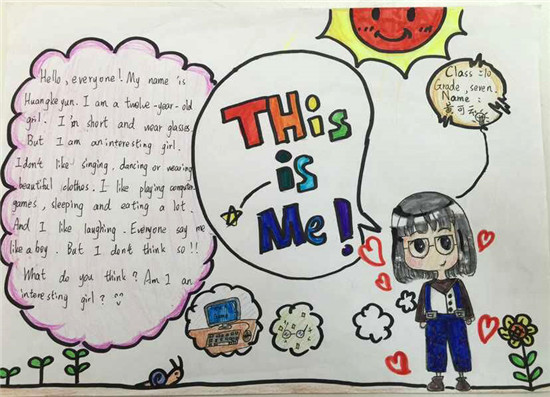 Hello, everyone! My name is
Huangkeyun. I am a twelve-year-old
girl. I'm short and wear glasses.
But I am an interesting girl.
I don't like singing, dancing or wearing
beautiful clothes. I like playing computer
games, sleeping and eating a lot.
And I like laughing. Everyone say me
like a boy. But I don't think so!!
What do you think? Am I an
interesting girl?
THis
is
Me!
Class: 10
Grade, seven
Name:
黄可